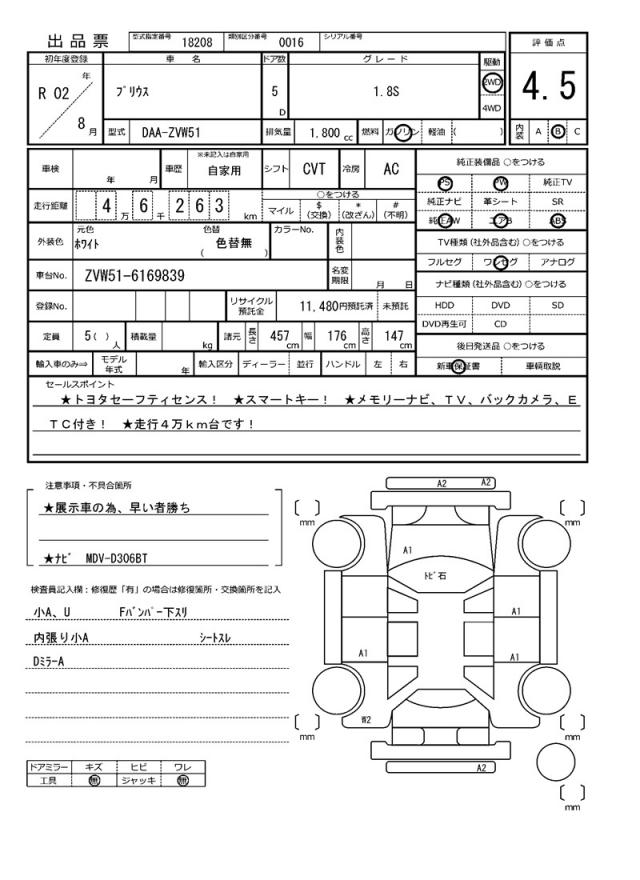 出品票 型式指定番号 18208 類別区分番号 0016 シリアル番号
評価点
4.5
内装 A B C
初年度登録 車名 ドア数 グレード 駆動
R 02 年 8 月 ﾌﾟﾘｳｽ 5 D 1.8S 2WD 4WD
型式 DAA-ZVW51 排気量 1.800 cc 燃料 ガソリン 軽油 ( )
車検 年 月 車歴 ※未記入は自家用 自家用 シフト CVT 冷房 AC
走行距離 4 万 6 千 2 6 3 km ○をつける
マイル $(交換) *(改ざん) #(不明)
外装色 元色 ﾎﾜｲﾄ 色替 ( 色替無 ) カラーNo. 内装色
車台No. ZVW51-6169839 名変期限 月 日
登録No. リサイクル預託金 11,480円預託済 未預託
定員 5( ) 人 積載量 kg 諸元 長さ 457 cm 幅 176 cm 高さ 147 cm
輸入車のみ⇒ モデル年式 年 輸入区分 ディーラー 並行 ハンドル 左 右
純正装備品 ○をつける
PS PW 純正TV
純正ナビ 革シート SR
純正AW エアB ABS
TV種類(社外品含む) ○をつける
フルセグ ワンセグ アナログ
ナビ種類(社外品含む) ○をつける
HDD DVD SD
DVD再生可 CD
後日発送品 ○をつける
新車保証書 車輌取説
セールスポイント
★トヨタセーフティセンス！ ★スマートキー！ ★メモリーナビ、ＴＶ、バックカメラ、Ｅ
ＴＣ付き！ ★走行４万ｋｍ台です！
注意事項・不具合箇所
★展示車の為、早い者勝ち
★ﾅﾋﾞ MDV-D306BT
検査員記入欄：修復歴「有」の場合は修復箇所・交換箇所を記入
小A、U Fﾊﾞﾝﾊﾟｰ下ｽﾘ
内張り小A ｼｰﾄｽﾚ
DﾐﾗｰA
ドアミラー キズ ヒビ ワレ
工具 無 ジャッキ 無
A2 A2
[ ] mm [ ] mm
A1
ﾄﾋﾞ石
A1
A1 A1
W2
[ ] mm [ ] mm
A2
[ ] mm